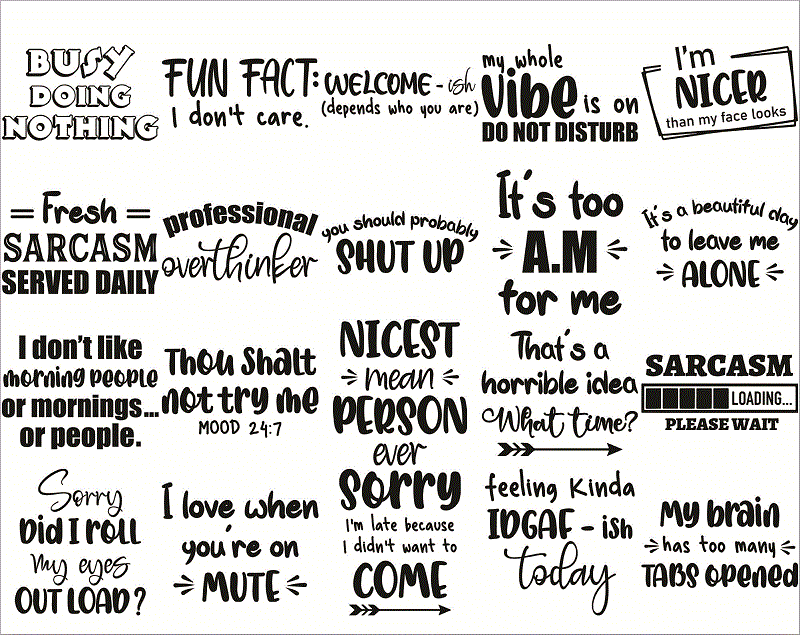 BUSY
DOING
NOTHING
FUN FACT:
I don't care.
WELCOME - ish
(depends who you are)
my whole
vibe is on
DO NOT DISTURB
I'm
NICER
than my face looks
= Fresh =
SARCASM
SERVED DAILY
professional
overthinker
you should probably
SHUT UP
It's too
A.M
for me
It's a beautiful day
to leave me
ALONE
I don't like
morning people
or mornings...
or people.
Thou Shalt
not try me
MOOD 24:7
NICEST
mean
PERSON
ever
That's a
horrible idea
What time?
SARCASM
LOADING...
PLEASE WAIT
Sorry
Did I roll
my eyes
OUT LOAD?
I love when
you're on
MUTE
sorry
I'm late because
I didn't want to
COME
feeling Kinda
IDGAF - ish
today
My brain
has too many
TABS opened